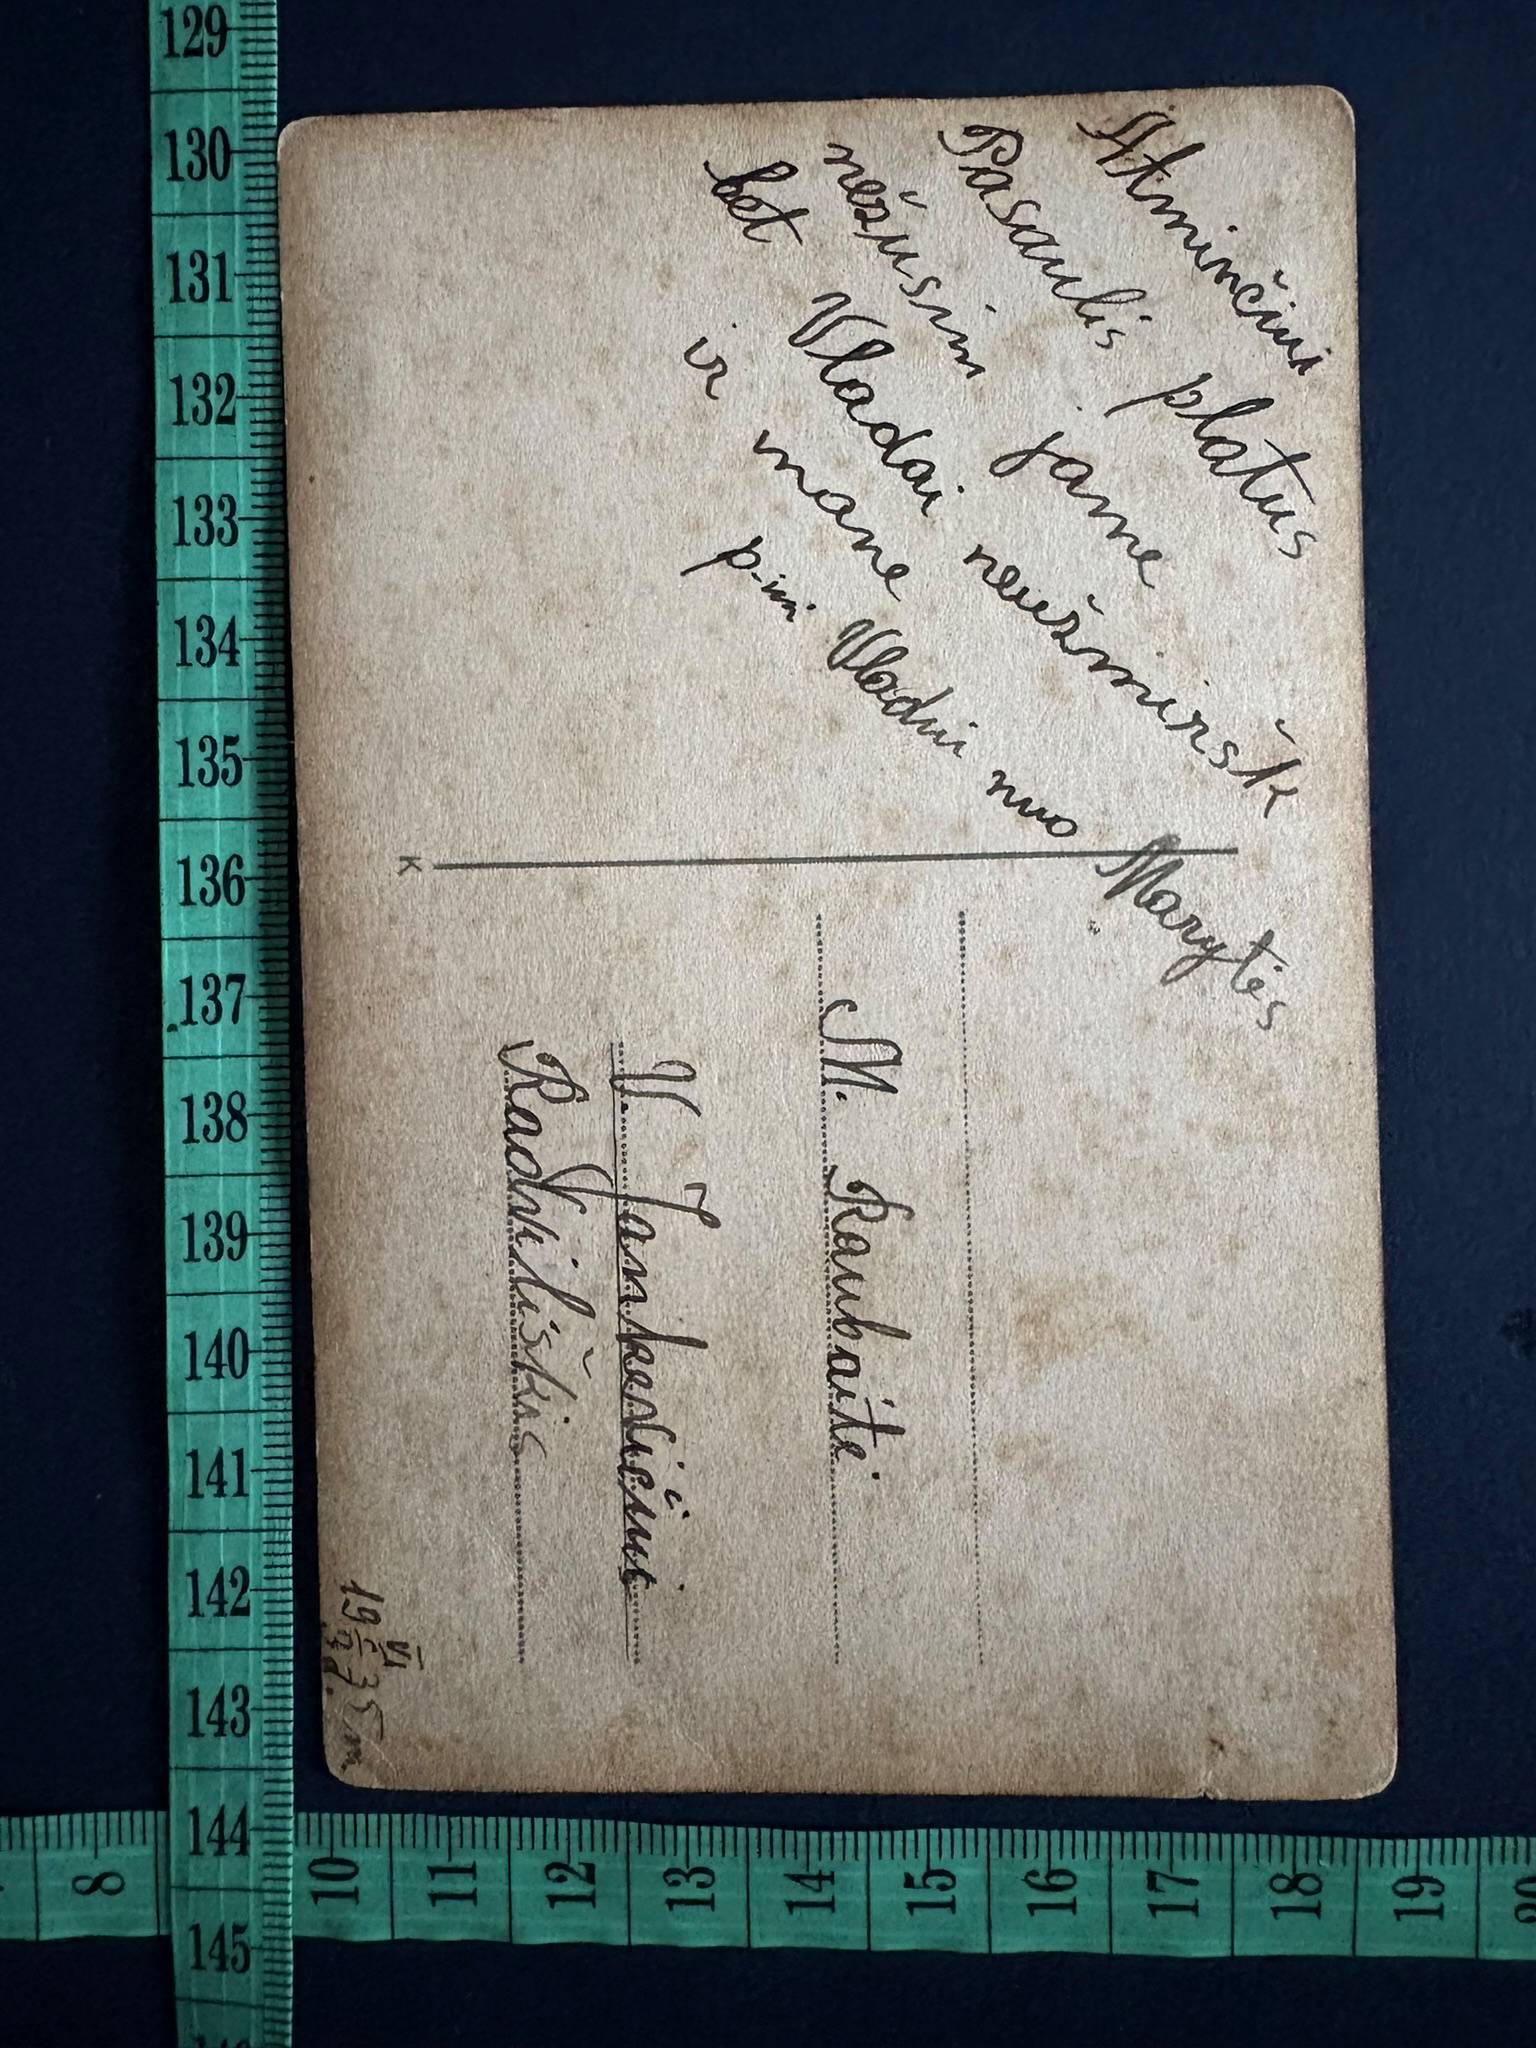 Atminčiui
Pasaulis platus
nežusim jame
bet Vladai neužmiršk
ir mane
p-lei Vladui nuo Marytės
M. Raubaitė
V. Jankevičiui
Radviliškis
VI
19 35 m.
K
129
130
131
132
133
134
135
136
137
138
139
140
141
142
143
144
145
8
10
11
12
13
14
15
16
17
18
19
20